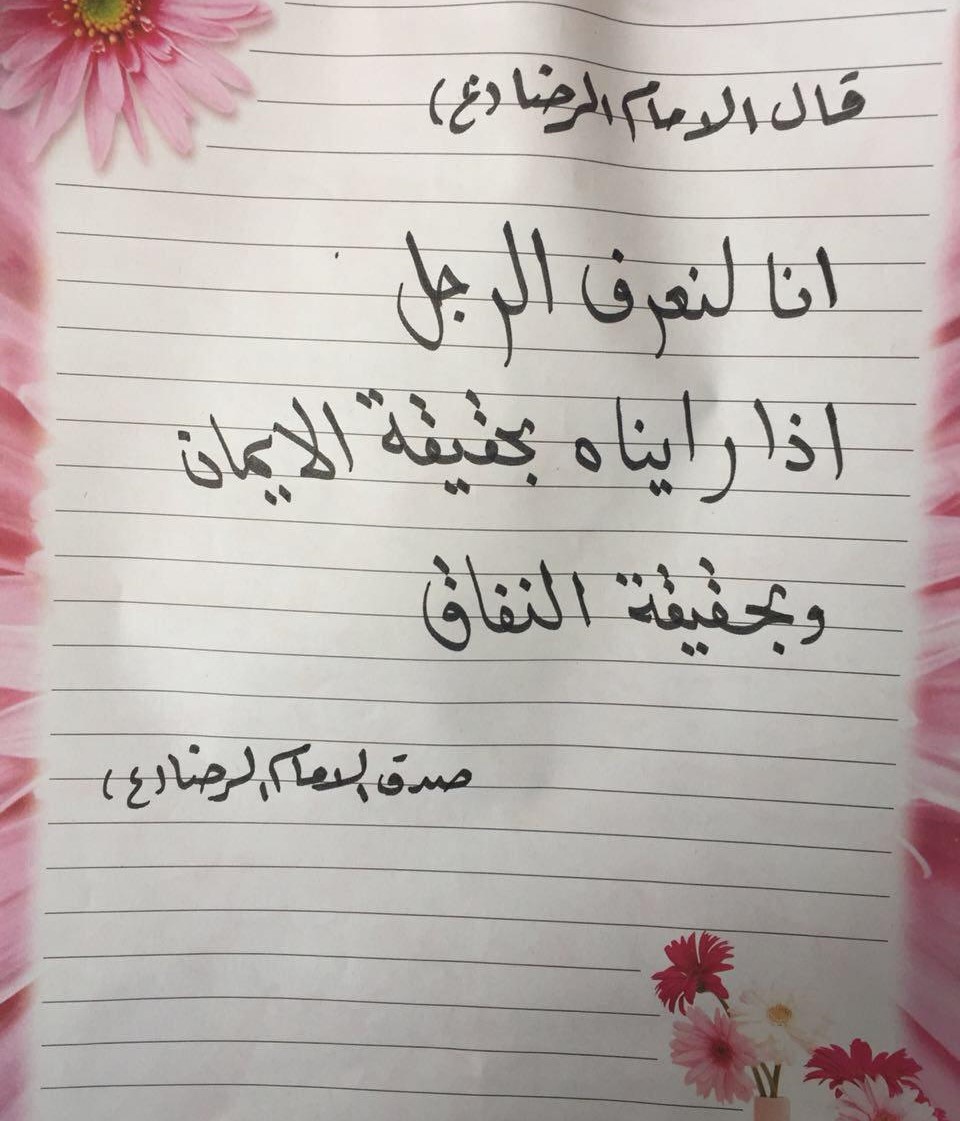 قال الامام الرضا (ع)
انا لنعرف الرجل
اذا رايناه بحقيقة الايمان
وبحقيقة النفاق
صدق الامام الرضا (ع)